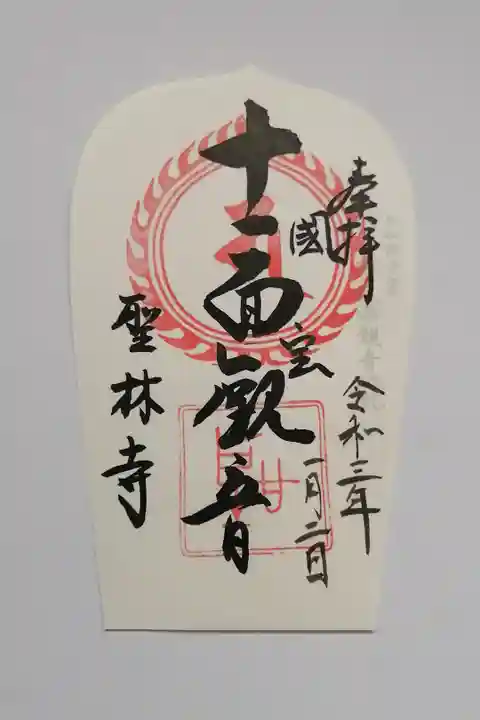 奉拝
令和三年
一月二日
國宝
十一面観音
聖林寺